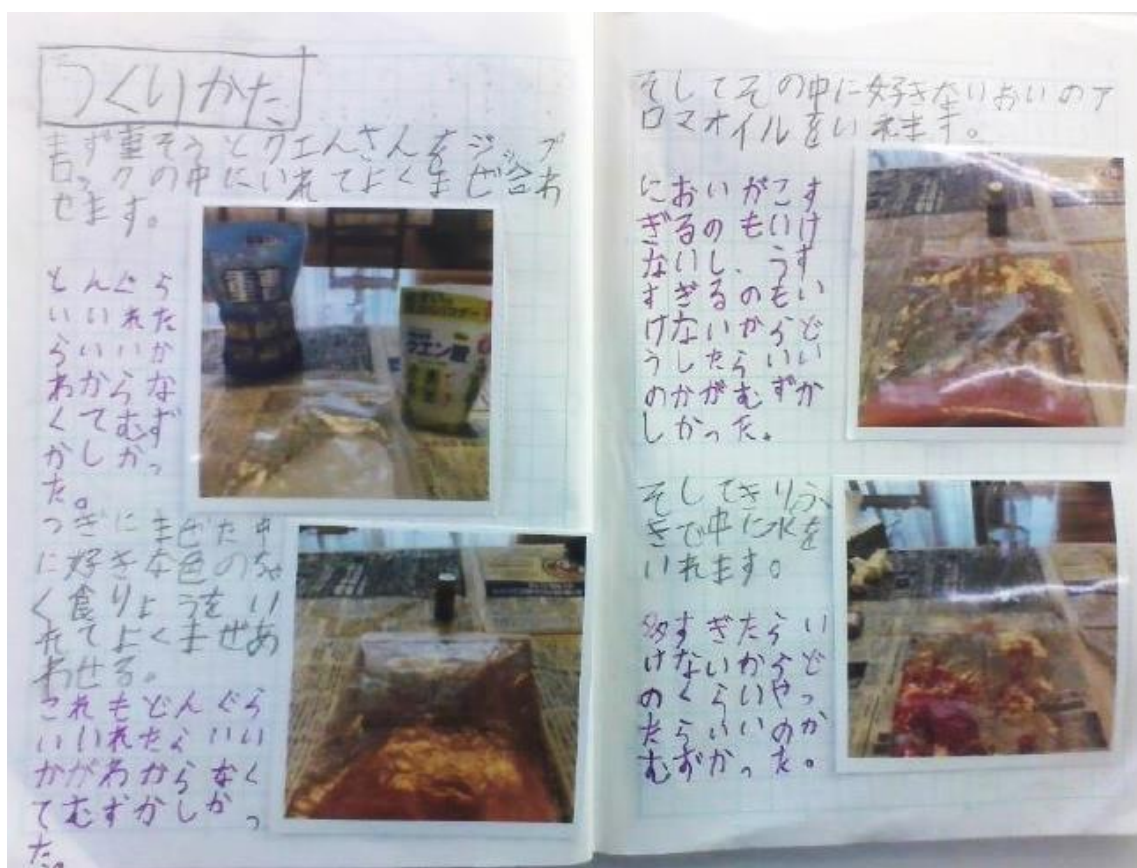 つくりかた
まず重そうとクエんさんをジップ
ロックの中にいれてよくまぜ合わ
せます。
重曹
クエン酸
どんぐら
いいれた
らいいか
わからな
くてむず
かしかっ
た。
つぎにまぜた中
に好きな色のちゃ
く食りょうをい
れてよくまぜあ
わせる。
これもどんぐら
いいれたらいい
かがわからなく
てむずかしかっ
た。
そしてその中に好きなにおいのア
ロマオイルをいれます。
においがこす
ぎるのもいけ
ないし、うす
すぎるのもい
けないからど
うしたらいい
のかがむずか
しかった。
そしてきりふ
きで中に水を
いれます。
多すぎたらい
けないからど
のくらいやっ
たらいいのか
むずかった。